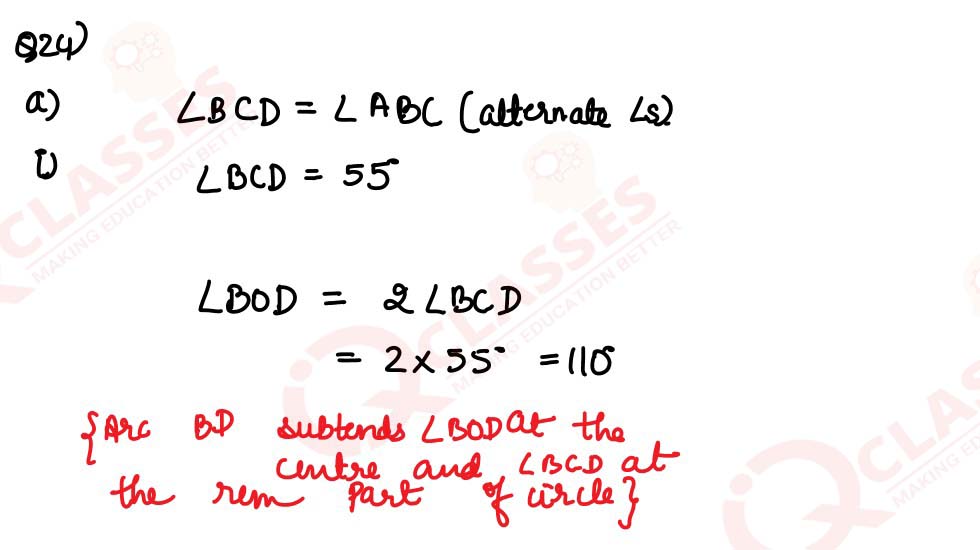 Q24)
a) ∠BCD = ∠ABC (alternate ∠s)
i) ∠BCD = 55°
∠BOD = 2∠BCD
= 2 x 55° = 110°
{Arc BD subtends ∠BOD at the
centre and ∠BCD at
the rem part of circle}
CLASSES
MAKING EDUCATION BETTER
IQ CLASSES
MAKING EDUCATION BETTER
IQ CLASSES
MAKING